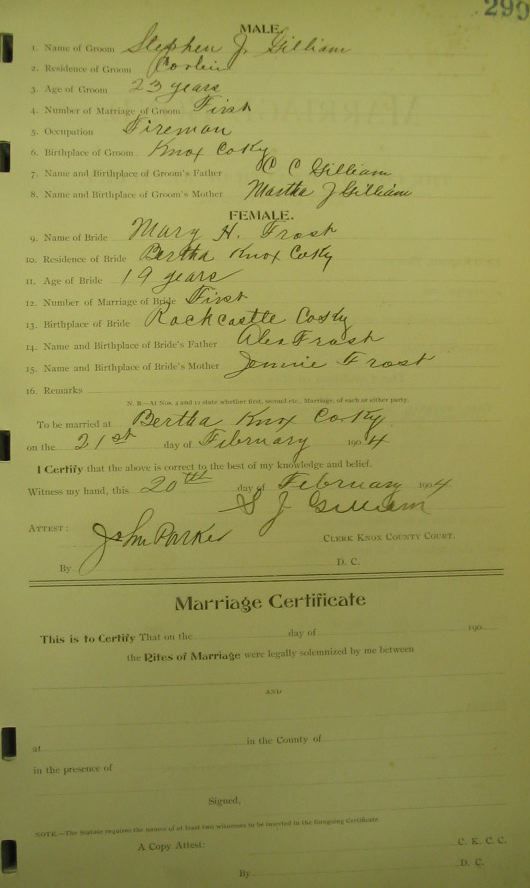 299
MALE.
1. Name of Groom Stephen J. Gilliam
2. Residence of Groom Corbin
3. Age of Groom 23 years
4. Number of Marriage of Groom First
5. Occupation Fireman
6. Birthplace of Groom Knox Co Ky
7. Name and Birthplace of Groom's Father C C Gilliam
8. Name and Birthplace of Groom's Mother Martha J Gilliam
FEMALE.
9. Name of Bride Mary H. Frost
10. Residence of Bride Bertha Knox Co Ky
11. Age of Bride 19 years
12. Number of Marriage of Bride First
13. Birthplace of Bride Rockcastle Co Ky
14. Name and Birthplace of Bride's Father Alex Frost
15. Name and Birthplace of Bride's Mother Jennie Frost
16. Remarks
N. B.—At Nos. 4 and 12 state whether first, second etc., Marriage, of each or either party.
To be married at Bertha Knox Co Ky
on the 21st day of February 1904
I Certify that the above is correct to the best of my knowledge and belief.
Witness my hand, this 20th day of February 1904
S J Gilliam
ATTEST:
John Parker CLERK KNOX COUNTY COURT.
By D. C.
Marriage Certificate
This is to Certify That on the day of 190
the Rites of Marriage were legally solemnized by me between
AND
at in the County of
in the presence of
Signed,
NOTE.—The Statute requires the names of at least two witnesses to be inserted in the foregoing Certificate.
A Copy Attest: C. K. C. C.
By D. C.